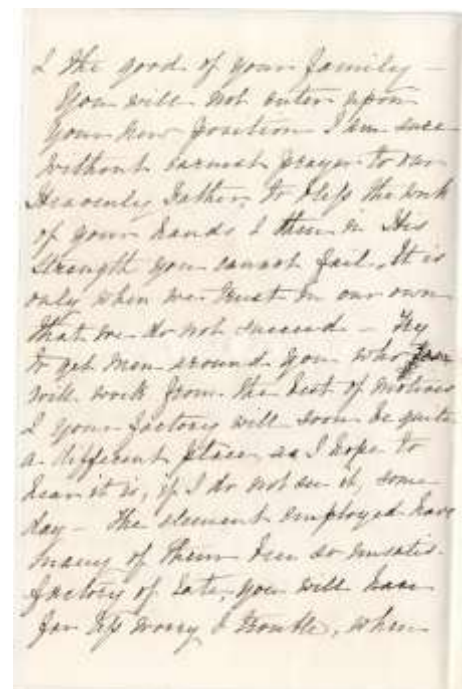 & the good of your family -
You will not enter upon
your new position I am sure
without earnest prayer to our
Heavenly Father, to bless the work
of your hands & then in His
strength you cannot fail. It is
only when we trust in our own
that we do not succeed - Try
to get men around you who
will work from the best of motives
& your factory will soon be quite
a different place, as I hope to
hear it is, if I do not see it, some
day - The element employed have
many of them been so unsatis-
factory of late, you will have
far less worry & trouble, when